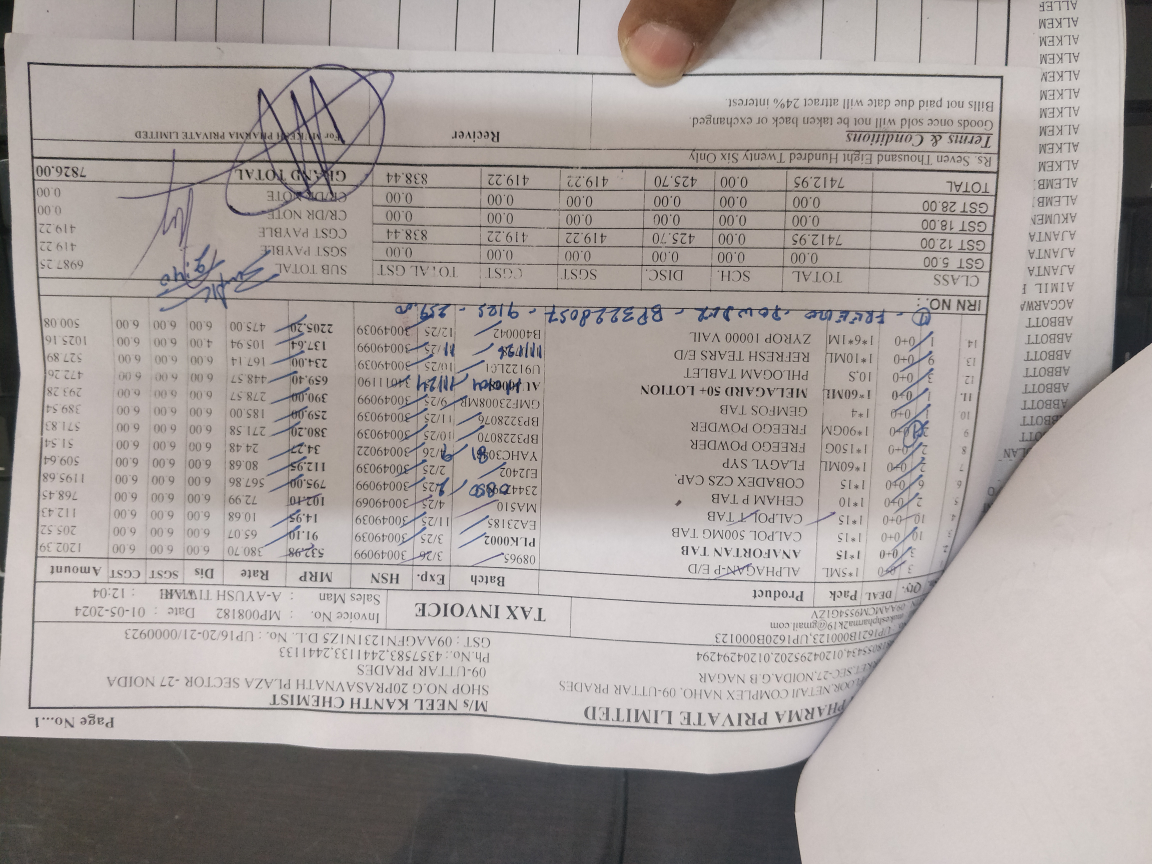 Page No...1
PHARMA PRIVATE LIMITED M/s NEEL KANTH CHEMIST
FLOOR,NETAJI COMPLEX, NAHO, 09-UTTAR PRADES SHOP NO.G 20PRASAVNATH PLAZA SECTOR -27 NOIDA
SEC-27,NOIDA G B NAGAR 09-UTTAR PRADES
01204295202,01204294294 Ph.No.: 4357583,2441133,2441133
UP1621B000123,UP1620B000123 GST : 09AAGFN1231N1Z5 D.L. No. : UP16/20-21/0000923
mukeshpharma2k19@gmail.com TAX INVOICE Invoice No. : MP008182 Date : 01-05-2024
09AAMCM9554G1ZV Sales Man : A-AYUSH TIWARI : 12:04
Qty. DEAL Pack Product Batch Exp. HSN MRP Rate Dis SGST CGST Amount
3 0+0 1*5ML ALPHAGAN-P E/D 08965 3/26 30049099 532.98 380.70 6.00 6.00 6.00 1202.39
2 3 0+0 1*15 ANAFORTAN TAB PLK0002 3/25 30049099 91.10 65.07 6.00 6.00 6.00 205.52
3 10 0+0 1*15 CALPOL 500MG TAB EA23185 11/25 14.95 10.68 6.00 6.00 6.00 112.43
4 10 0+0 1*15 CALPOL T TAB MA510 4/25 30049069 102.10 72.99 6.00 6.00 6.00 768.45
5 2 0+0 1*10 CEHAM P TAB 795.00 567.86 6.00 6.00 6.00 1195.68
6 6 0+0 1*15 COBADEX CZS CAP. EJ2402 2/25 30049039 112.95 80.68 6.00 6.00 6.00 509.64
7 2 0+0 1*60ML FLAGYL SYP 4/26 30049022 34.27 24.48 6.00 6.00 6.00 51.54
8 2 0+0 1*150G FREEGO POWDER BP3228070 10/25 30049039 380.20 271.58 6.00 6.00 6.00 571.83
9 0+0 1*90GM FREEGO POWDER BP3228076 11/25 30049039 259.00 185.00 6.00 6.00 6.00 389.54
10 1 0+0 1*4 GEMFOS TAB GMF23008MB 9/25 30049039 390.00 278.57 6.00 6.00 6.00 293.28
11. 1 0+0 1*60ML MELLAGARD 50+ LOTION 11/24 34011190 659.40 448.57 6.00 6.00 6.00 472.26
12 3 0+0 10,S PHLOGAM TABLET U91221C1 10/ 30049039 234.00 167.14 6.00 6.00 6.00 527.89
13 9 0+0 1*10ML REFRESH TEARS E/D 30049099 137.64 105.94 4.00 6.00 6.00 1025.16
14 1 0+0 1*6*1M ZYROP 10000 VAIL B400042 12/25 30049039 2205.20 475.00 6.00 6.00 6.00 500.08
POWDER - BP3228057 - 9/25 - 259.00
IRN NO. :
CLASS TOTAL SCH. DISC. SGST CGST TOTAL GST SUB TOTAL 6987.25
GST 5.00 0.00 0.00 0.00 0.00 0.00 0.00 SGST PAYBLE 419.22
GST 12.00 7412.95 0.00 425.70 419.22 419.22 838.44 CGST PAYBLE 419.22
GST 18.00 0.00 0.00 0.00 0.00 0.00 0.00 CR/DR NOTE 0.00
GST 28.00 0.00 0.00 0.00 0.00 0.00 0.00 CR/DR NOTE 0.00
TOTAL 7412.95 0.00 425.70 419.22 419.22 838.44 GRAND TOTAL 7826.00
Rs. Seven Thousand Eight Hundred Twenty Six Only
Terms & Conditions Reciver For MUKESH PHARMA PRIVATE LIMITED
Goods once sold will not be taken back or exchanged.
Bills not paid due date will attract 24% interest.
ABBOTT
ABBOTT
ABBOTT
ABBOTT
ABBOTT
ABBOTT
AGGARWA
AIMIL F
AJANTA
AJANTA
AJANTA
AKUMEN
ALEMB
ALEMB
ALKEM
ALKEM
ALKEM
ALKEM
ALKEM
ALKEM
ALKEM
ALKEM
ALLEF